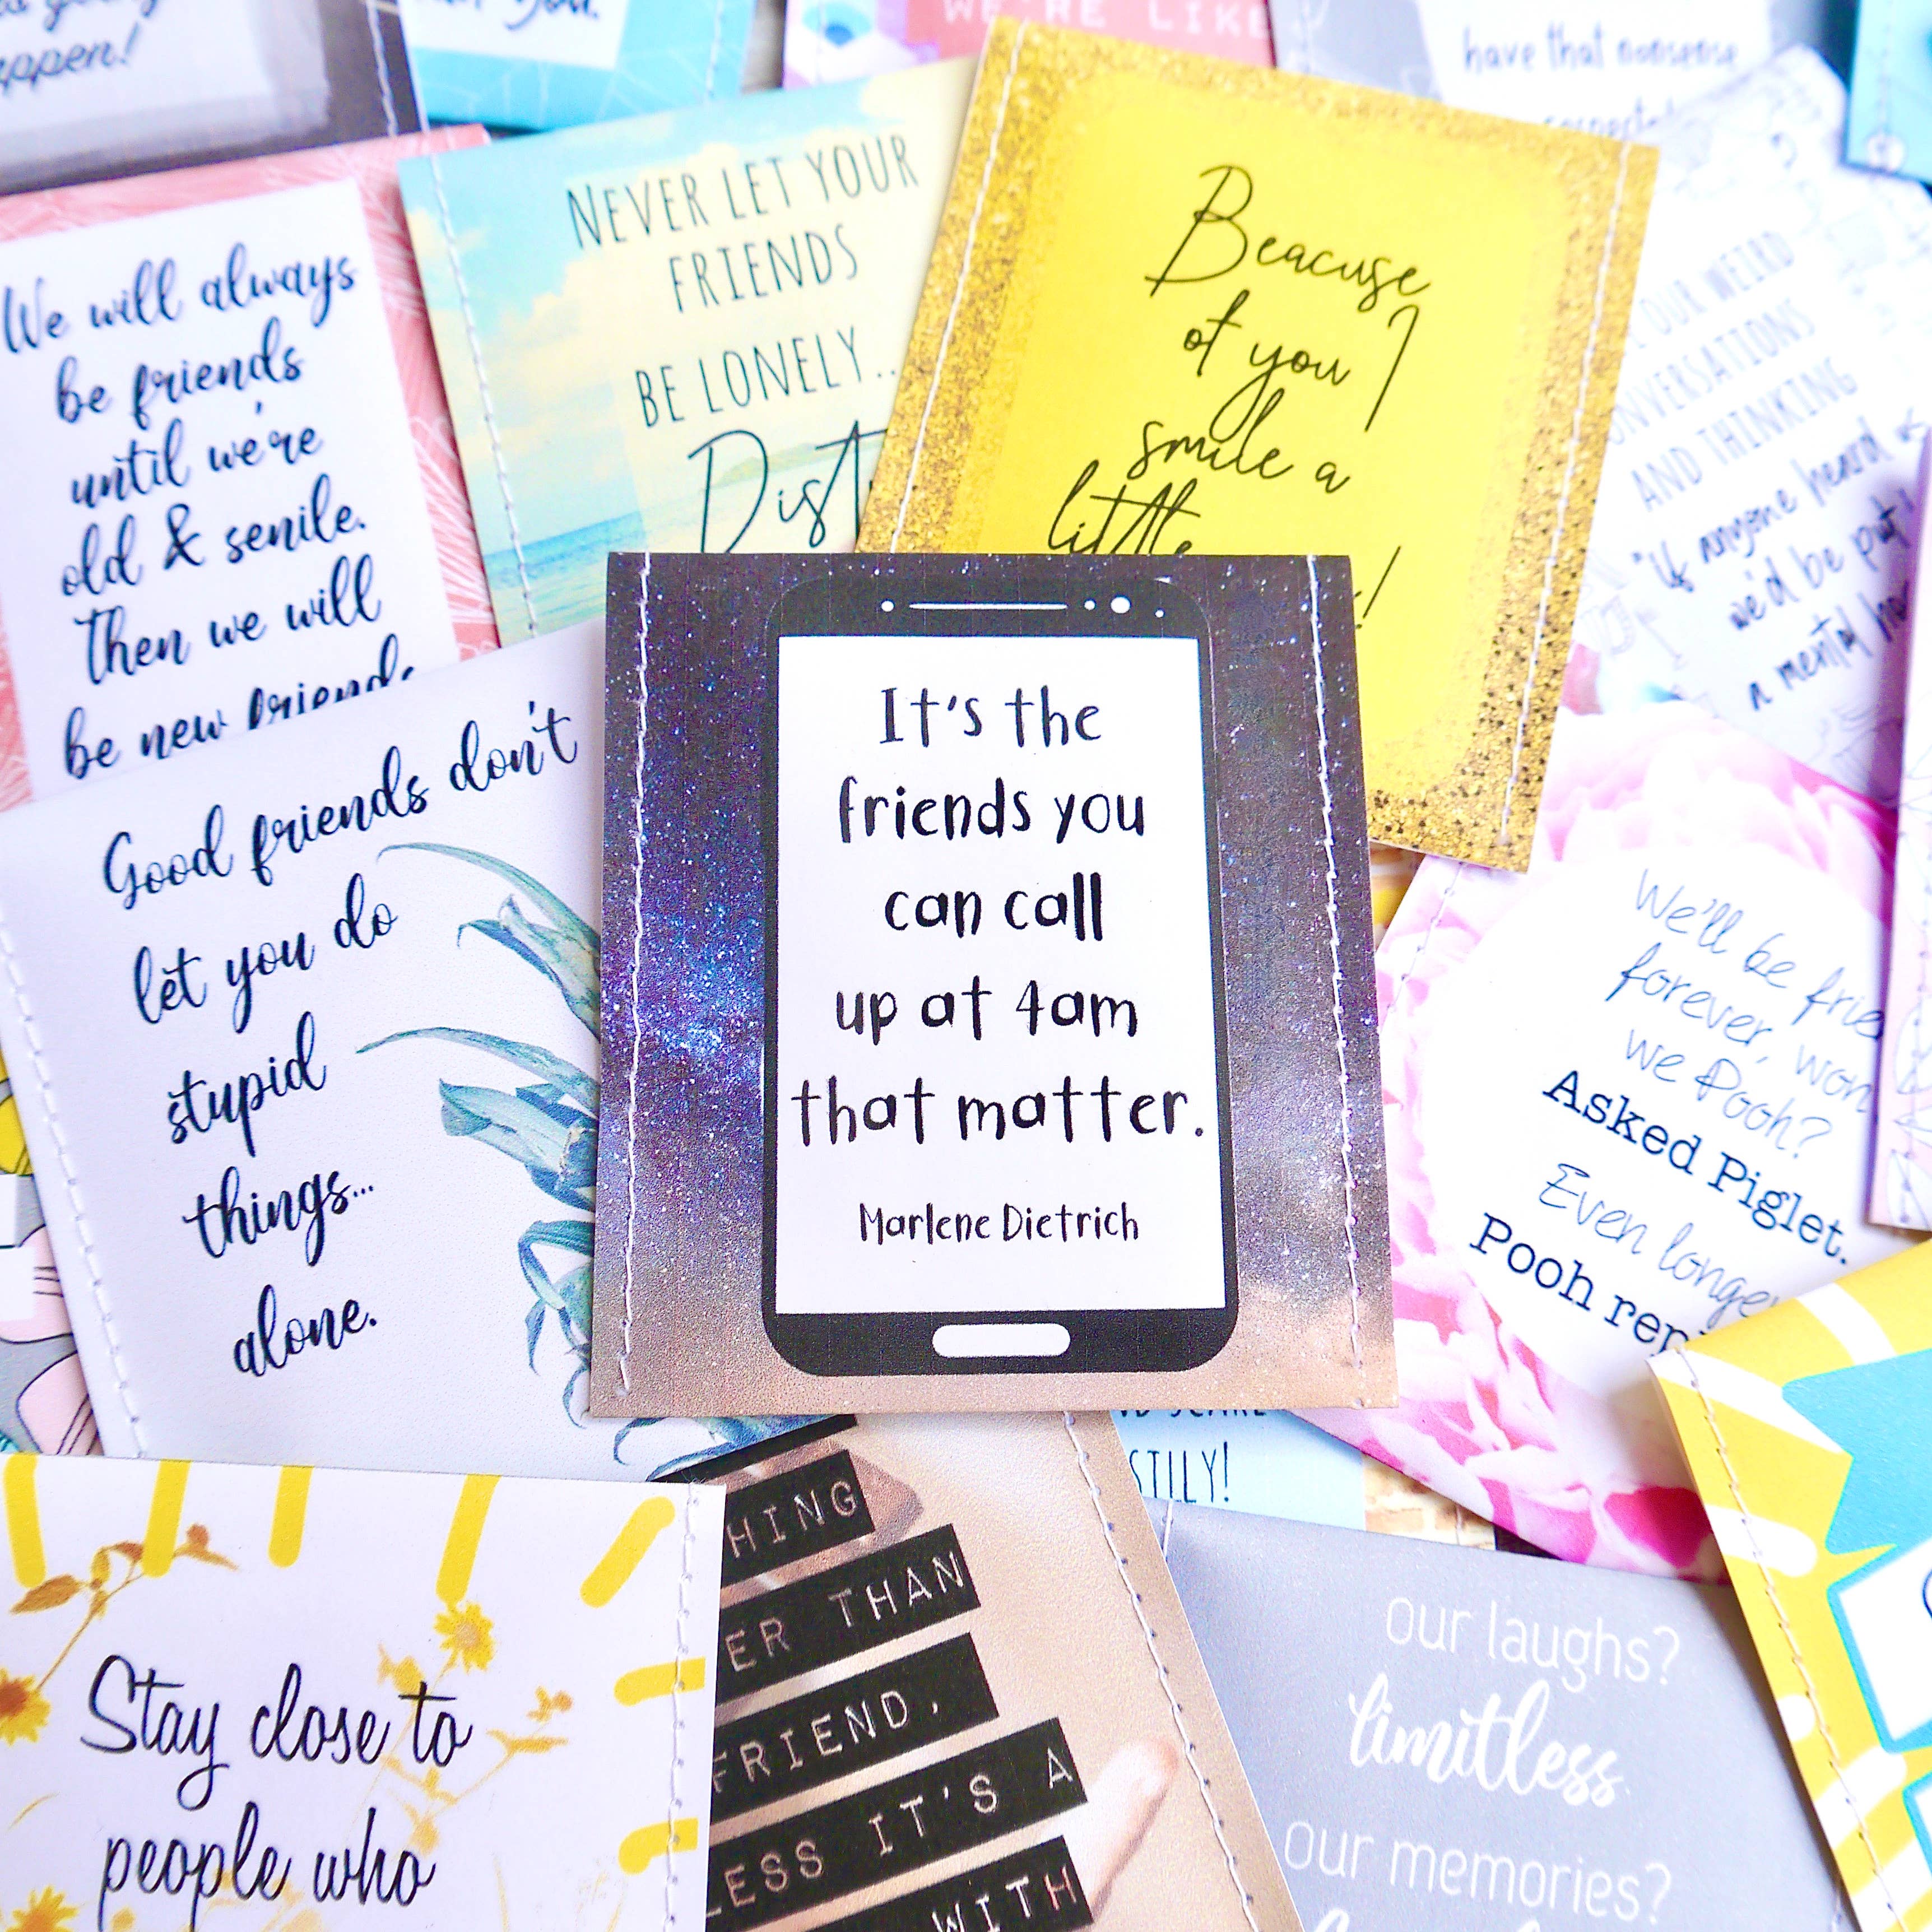 appen!
you.
WE'RE LIKE
have that nonsense
We will always
be friends
until we're
old & senile.
Then we will
be new friends
NEVER LET YOUR
FRIENDS
BE LONELY...
Beacuse
of you I
smile a
little
!
OUR WEIRD
AND THINKING
"if anyone heard
we'd be put
a mental
Good friends don't
let you do
stupid
things...
alone.
It's the
friends you
can call
up at 4am
that matter.
Marlene Dietrich
We'll be frie
forever, won
we Pooh?
Asked Piglet.
Even longe
Pooh rep
STILY!
HING
ER THAN
FRIEND,
LESS IT'S A
WITH
Stay close to
people who
our laughs?
limitless.
our memories?